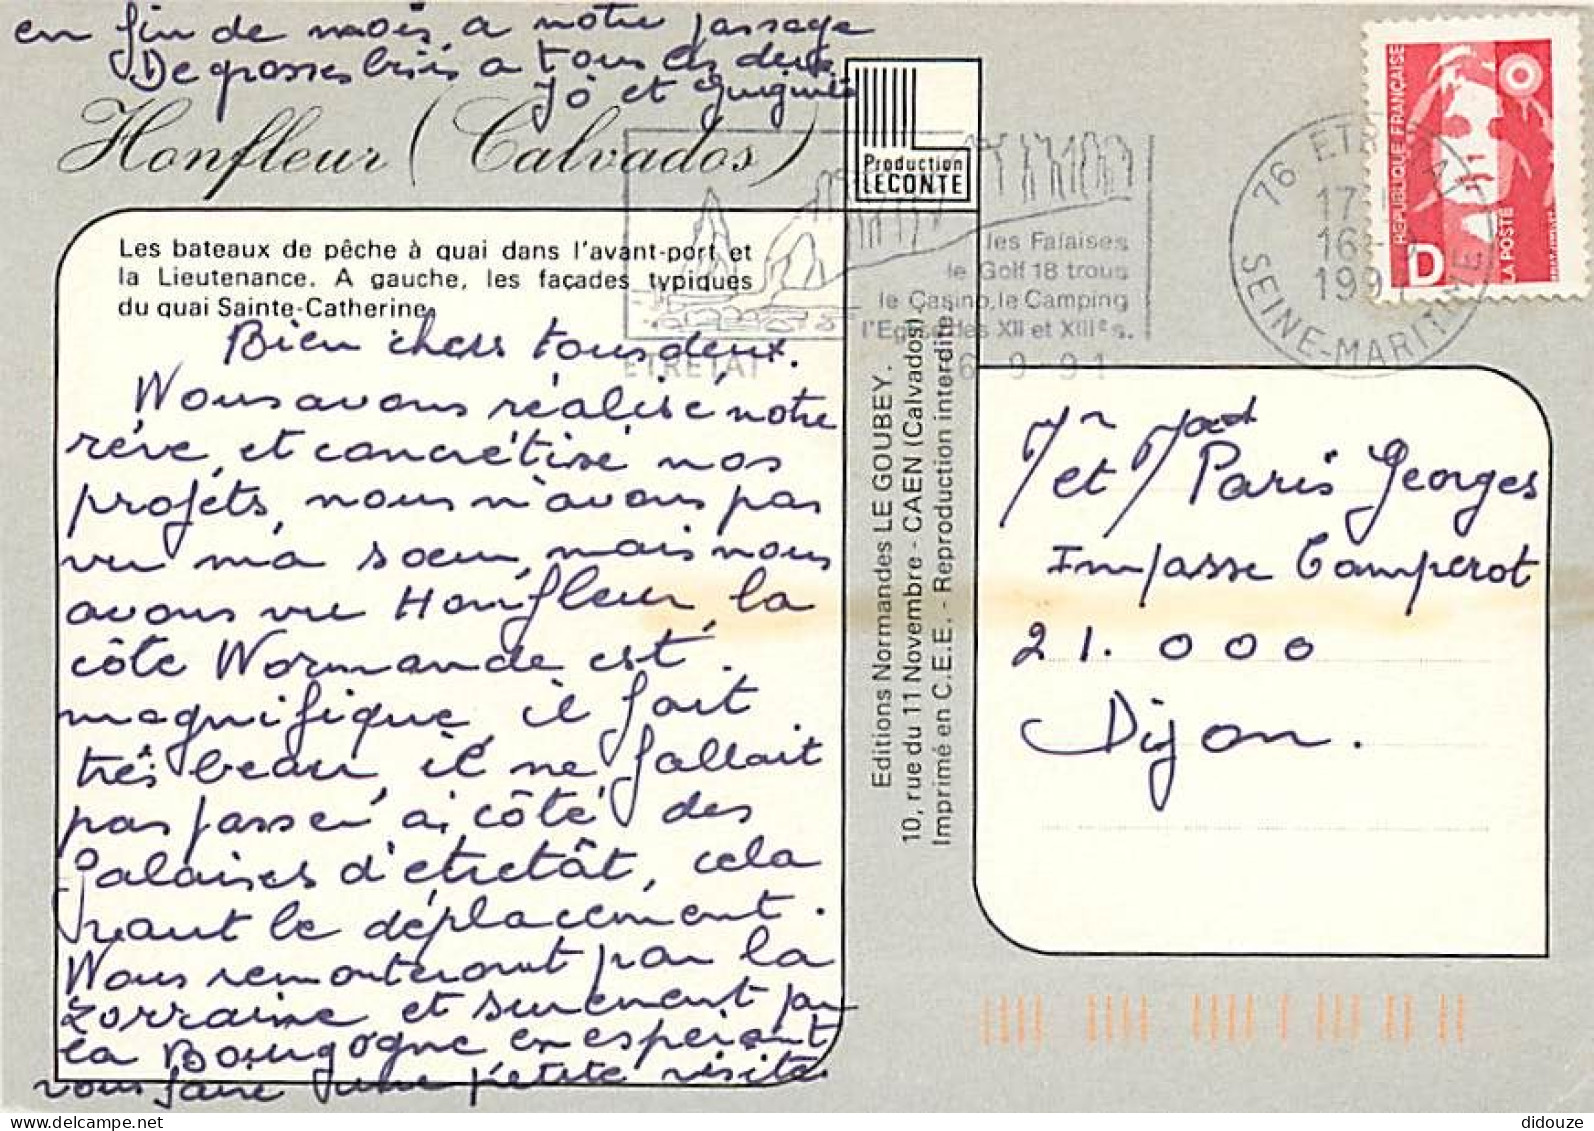 en fin de mois a notre passage
De grosses bises a tous les deux
Jo et
Honfleur (Calvados)
Production
LECONTE
Les bateaux de pêche à quai dans l'avant-port et
la Lieutenance. A gauche, les façades typiques
du quai Sainte-Catherine.
Bien chers tous deux.
Nous avons réalisé notre
rêve, et concrétisé nos
projets, nous n'avons pas
vu ma soeur, mais nous
avons vu Honfleur, la
côte Normande est
magnifique, il fait
très beau, il ne fallait
pas passer à côté des
falaises d'etretât, cela
vaut le déplacement.
Nous remonterons par la
Lorraine et surement par
la Bourgogne en espérant
vous faire une petite visite
les Falaises
le Golf 18 trous
le Casino, le Camping
l'Eglise des XII et XIIIes.
ETRETAT
16-9-91
Editions Normandes LE GOUBEY.
10, rue du 11 Novembre - CAEN (Calvados)
Imprimé en C.E.E. - Reproduction interdite
76 ETRETAT
17 H
16-9
1991
SEINE-MARITIME
REPUBLIQUE FRANÇAISE
D
LA POSTE
Mr et Mad Paris Georges
Impasse Camperot
21.000
Dijon.
didouze | Delcampe.net